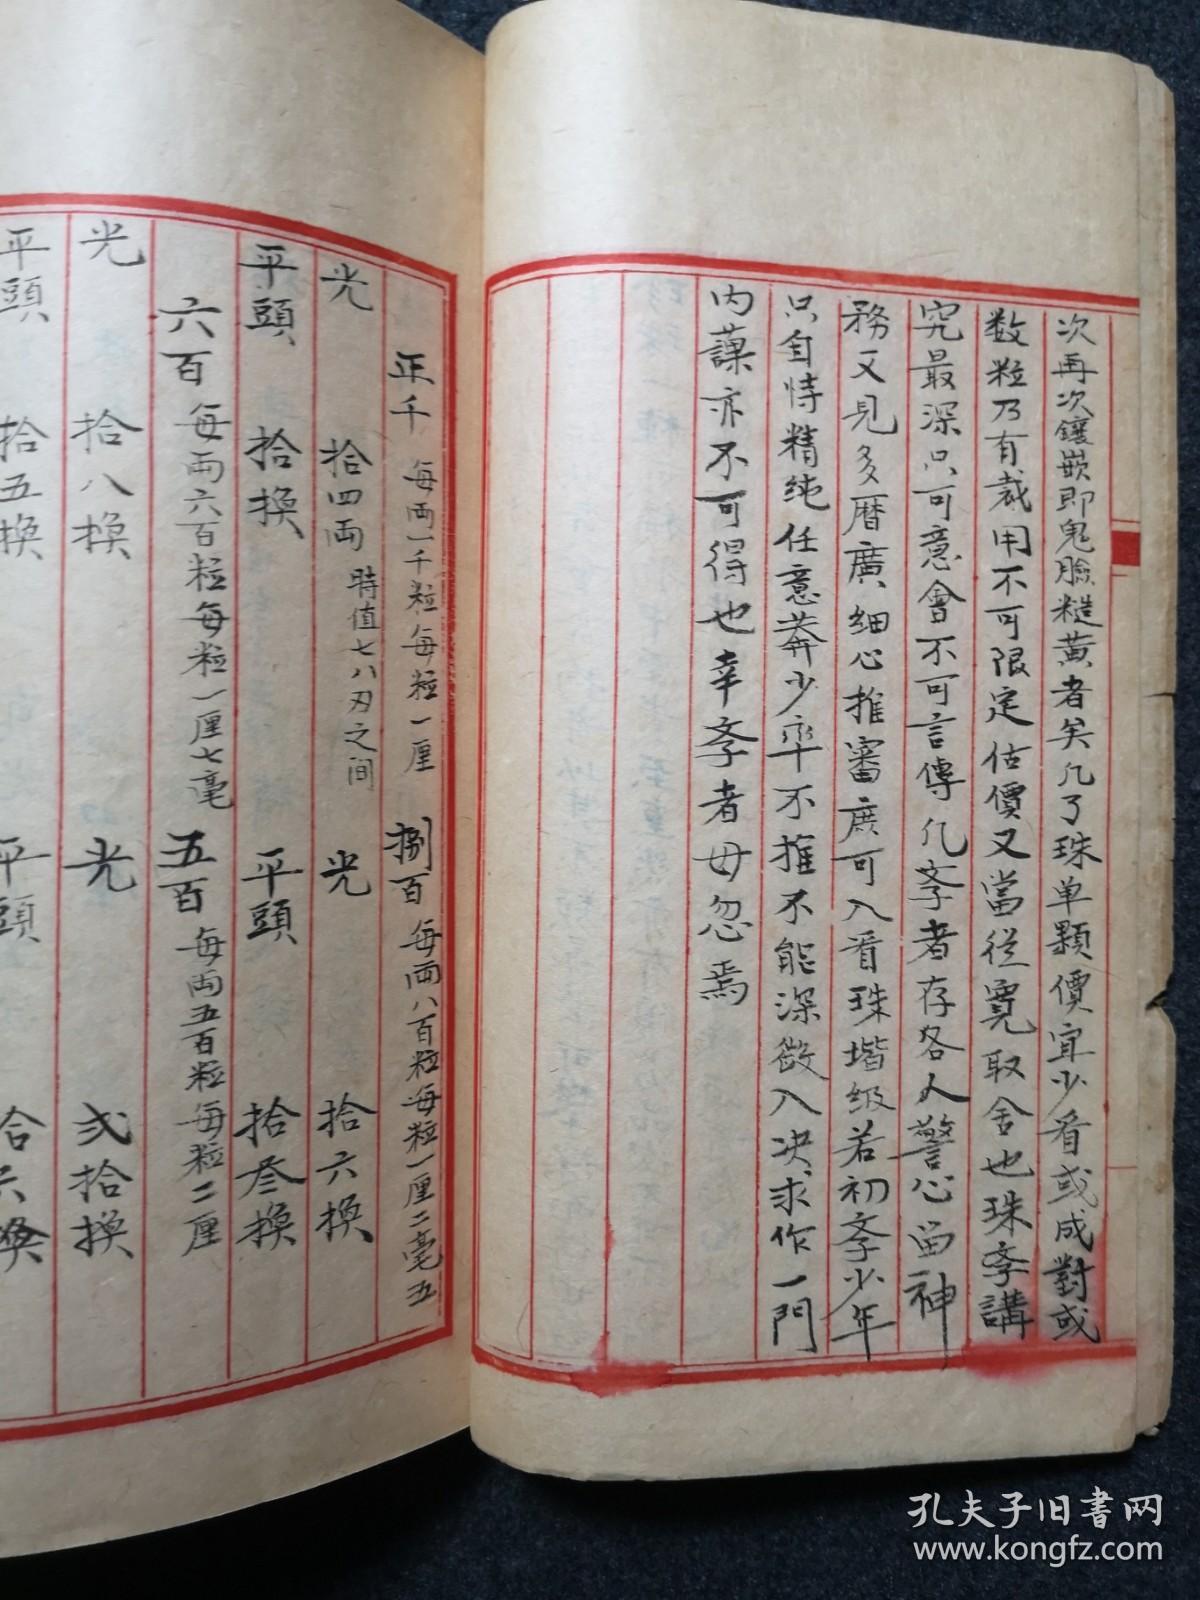 次再次鑲嵌即鬼臉糙黄者矣凡了珠单顆價宜少看或成對或
数粒乃有裁用不可限定估價又當從寬取舍也珠孛講
究最深只可意會不可言傳凡孛者存各人警心留神
務又見多曆廣細心推審庶可入看珠堦级若初孛少年
只自恃精纯任意莽少率不推不能深微入决求作一門
内藁亦不可得也幸孛者毋忽焉
正千 每両一千粒每粒一厘 捌百 每両八百粒每粒一厘二毫五
光 拾四両 時值七八刃之间 光 拾六换
平頭 拾换 平頭 拾叁换
六百 每両六百粒每粒一厘七毫 五百 每両五百粒每粒二厘
光 拾八换 光 弍拾换
平頭 拾五换 平頭 拾六换
孔夫子旧書网
www.kongfz.com